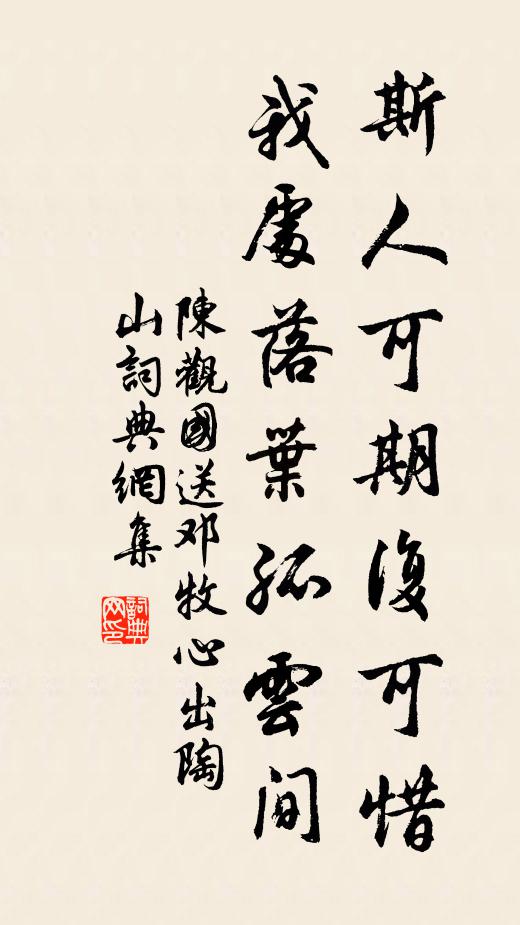 斯人可期復可惜
我處落葉孤雲间
陳觀國送邓牧心出陶
山詞典網集
詞典
网印